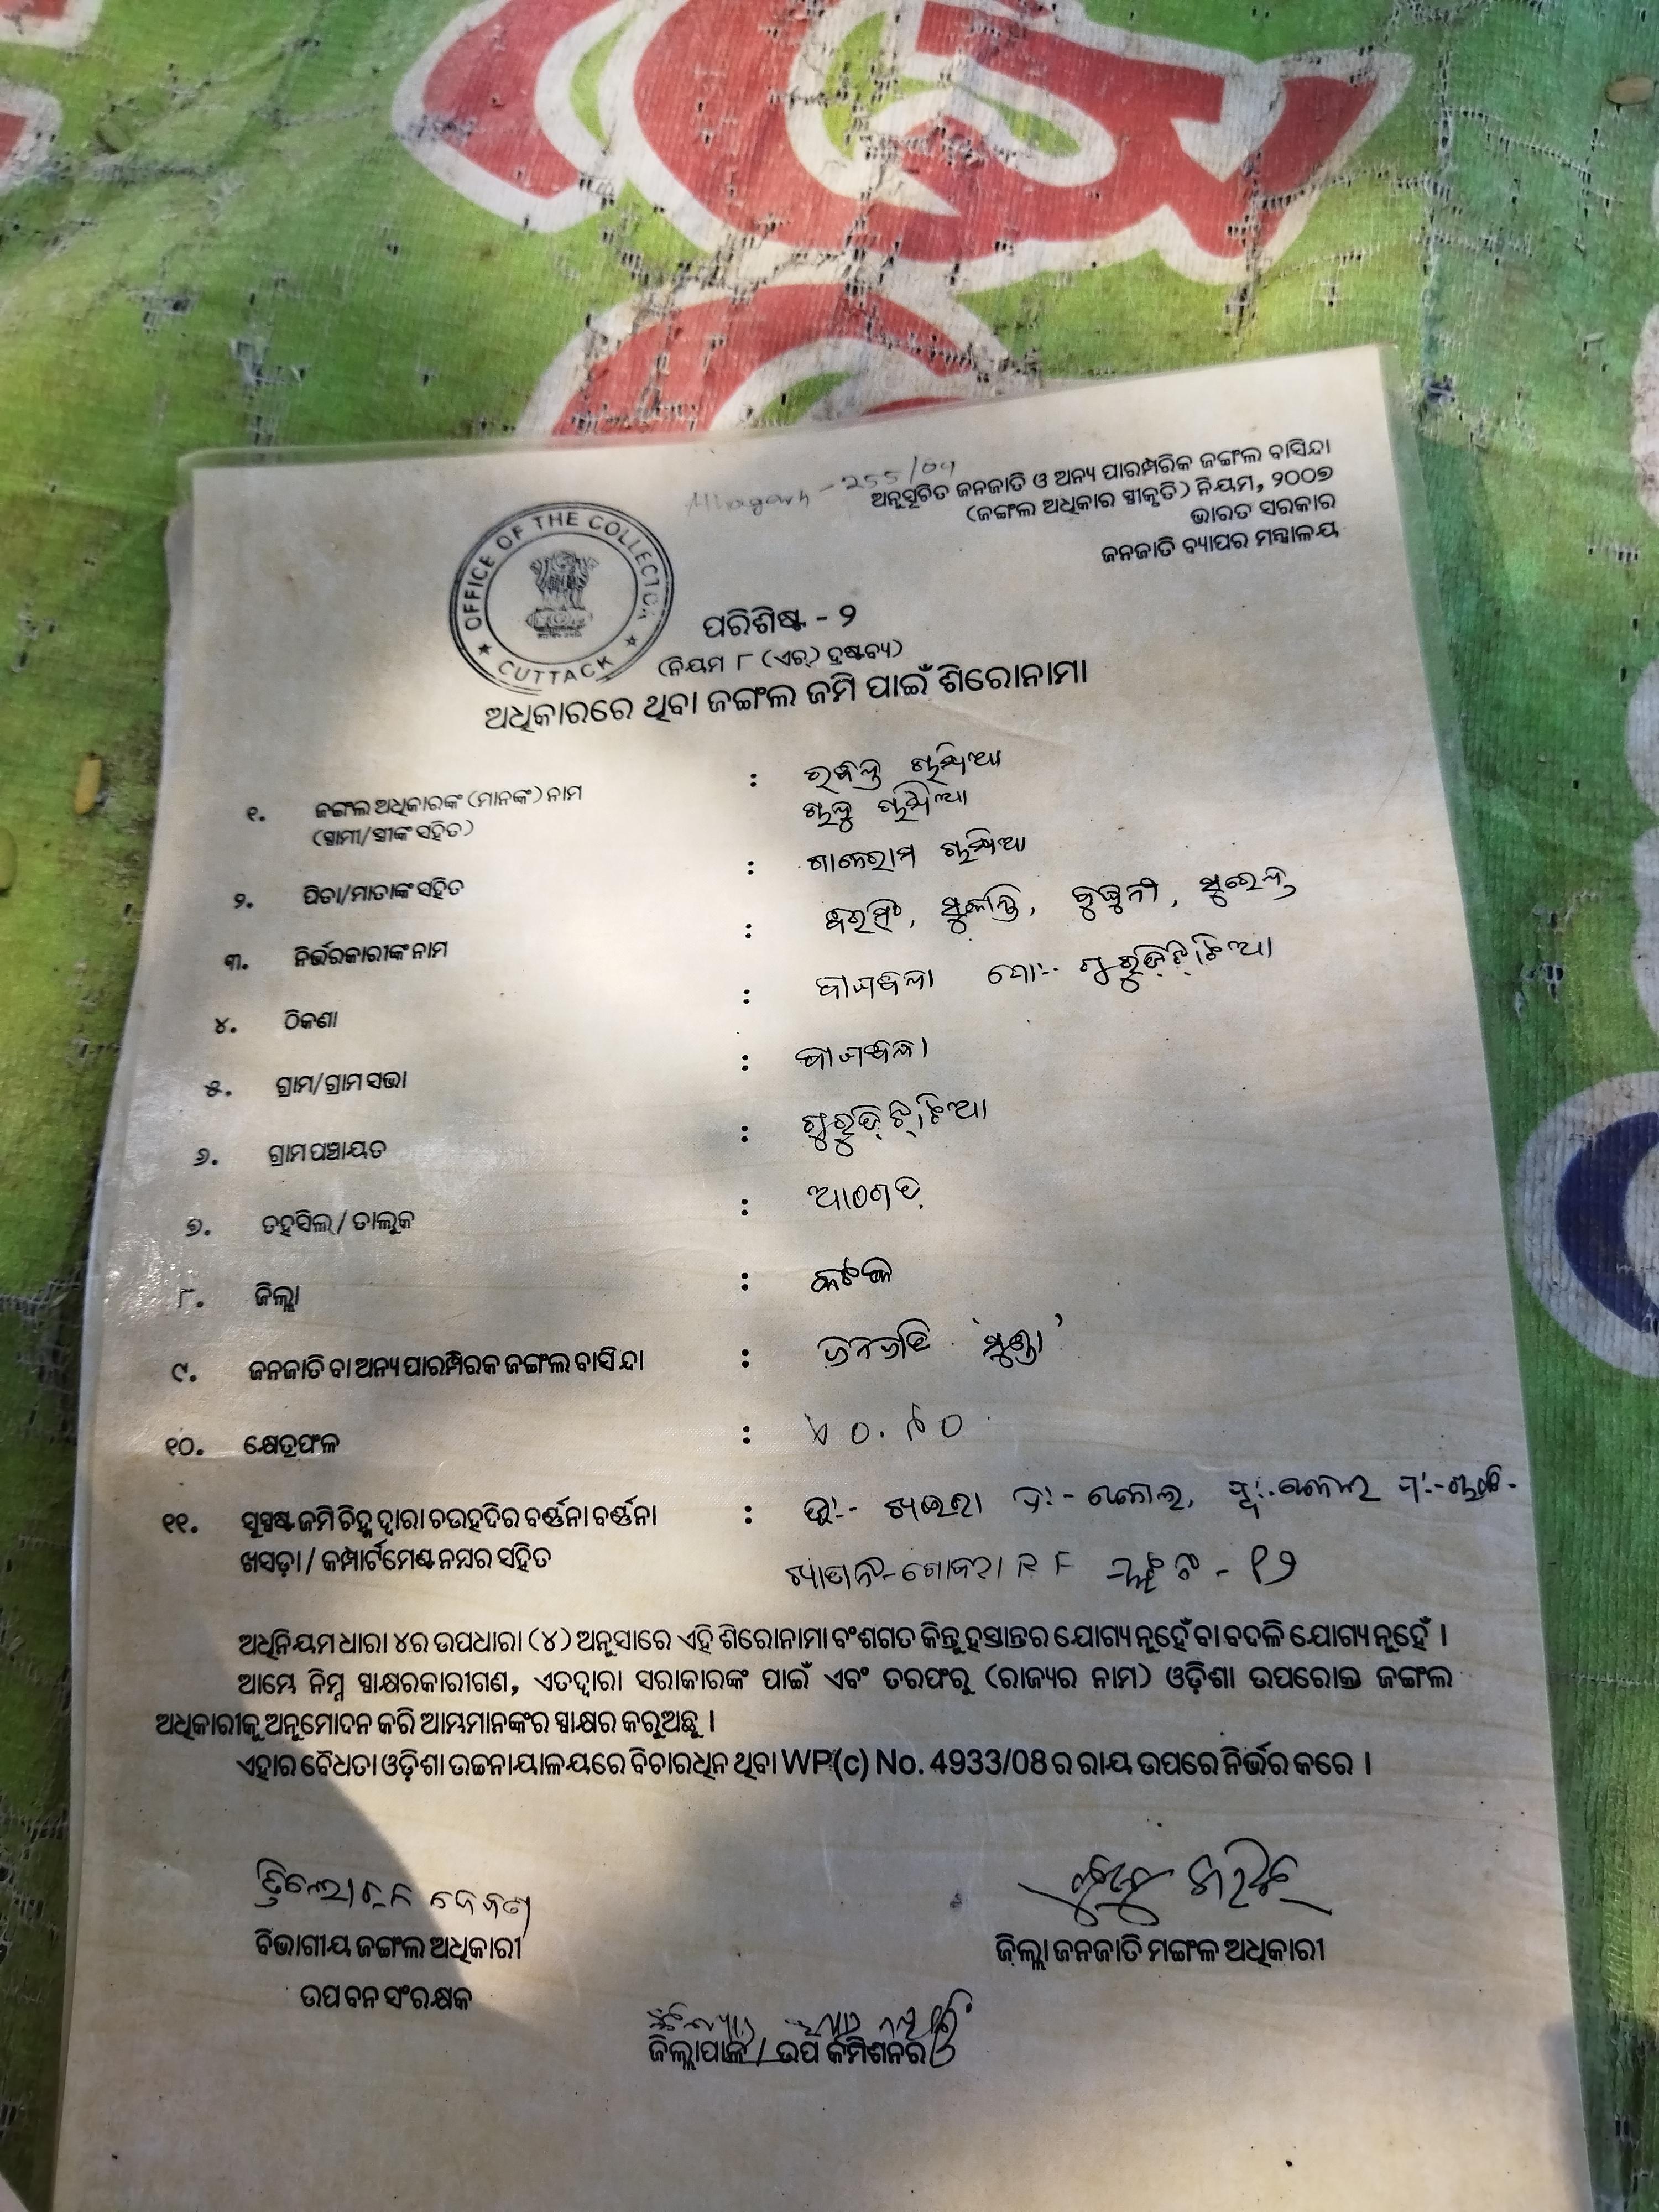 Athagarh - 255/09
ଅନୁସୂଚିତ ଜନଜାତି ଓ ଅନ୍ୟ ପାରମ୍ପରିକ ଜଙ୍ଗଲ ବାସିନ୍ଦା
(ଜଙ୍ଗଲ ଅଧିକାର ସ୍ୱୀକୃତି) ନିୟମ, ୨୦୦୭
ଭାରତ ସରକାର
ଜନଜାତି ବ୍ୟାପର ମନ୍ତ୍ରାଳୟ
OFFICE OF THE COLLECTOR
★ CUTTACK ★
ପରିଶିଷ୍ଟ - ୨
(ନିୟମ ୮ (ଏଚ୍) ଦ୍ରଷ୍ଟବ୍ୟ)
ଅଧିକାରରେ ଥିବା ଜଙ୍ଗଲ ଜମି ପାଇଁ ଶିରୋନାମା
୧. ଜଙ୍ଗଲ ଅଧିକାରଙ୍କ (ମାନଙ୍କ) ନାମ :
(ସ୍ୱାମୀ/ସ୍ତ୍ରୀଙ୍କ ସହିତ)
୨. ପିତା/ମାତାଙ୍କ ସହିତ :
୩. ନିର୍ଭରକାରୀଙ୍କ ନାମ : ସୁରେନ୍ଦ୍ର
୪. ଠିକଣା : ପୋଃ- ଗୁରୁଡ଼ିଝାଟିଆ
୫. ଗ୍ରାମ/ଗ୍ରାମ ସଭା :
୬. ଗ୍ରାମ ପଞ୍ଚାୟତ : ଗୁରୁଡ଼ିଝାଟିଆ
୭. ତହସିଲ୍ / ତାଲୁକ : ଆଠଗଡ଼
୮. ଜିଲ୍ଲା : କଟକ
୯. ଜନଜାତି ବା ଅନ୍ୟ ପାରମ୍ପିରକ ଜଙ୍ଗଲ ବାସିନ୍ଦା : ଜନଜାତି 'ମୁଣ୍ଡା'
୧୦. କ୍ଷେତ୍ରଫଳ :
୧୧. ସୁସ୍ପଷ୍ଟ ଜମି ଚିହ୍ନ ଦ୍ୱାରା ଚଉହଦିର ବର୍ଣ୍ଣନା ବର୍ଣ୍ଣନା :
ଖସଡ଼ା / କମ୍ପାର୍ଟମେଣ୍ଟ ନମ୍ବର ସହିତ R F - ୧୨
ଅଧିନିୟମ ଧାରା ୪ର ଉପଧାରା (୪) ଅନୁସାରେ ଏହି ଶିରୋନାମା ବଂଶଗତ କିନ୍ତୁ ହସ୍ତାନ୍ତର ଯୋଗ୍ୟ ନୁହେଁ ବା ବଦଳି ଯୋଗ୍ୟ ନୁହେଁ ।
ଆମ୍ଭେ ନିମ୍ନ ସ୍ୱାକ୍ଷରକାରୀଗଣ, ଏତଦ୍ୱାରା ସରାକାରଙ୍କ ପାଇଁ ଏବଂ ତରଫରୁ (ରାଜ୍ୟର ନାମ) ଓଡ଼ିଶା ଉପରୋକ୍ତ ଜଙ୍ଗଲ
ଅଧିକାରୀକୁ ଅନୁମୋଦନ କରି ଆମ୍ଭମାନଙ୍କର ସ୍ୱାକ୍ଷର କରୁଅଛୁ ।
ଏହାର ବୈଧତା ଓଡ଼ିଶା ଉଚ୍ଚନାୟାଳୟରେ ବିଚାରଧିନ ଥିବା WP(c) No. 4933/08 ର ରାୟ ଉପରେ ନିର୍ଭର କରେ ।
ବିଭାଗୀୟ ଜଙ୍ଗଲ ଅଧିକାରୀ
ଜ଼ିଲ୍ଲା ଜନଜାତି ମଙ୍ଗଳ ଅଧିକାରୀ
ଉପ ବନ ସଂରକ୍ଷକ
ଜିଲ୍ଲାପାଳ / ଉପ କମିଶନର